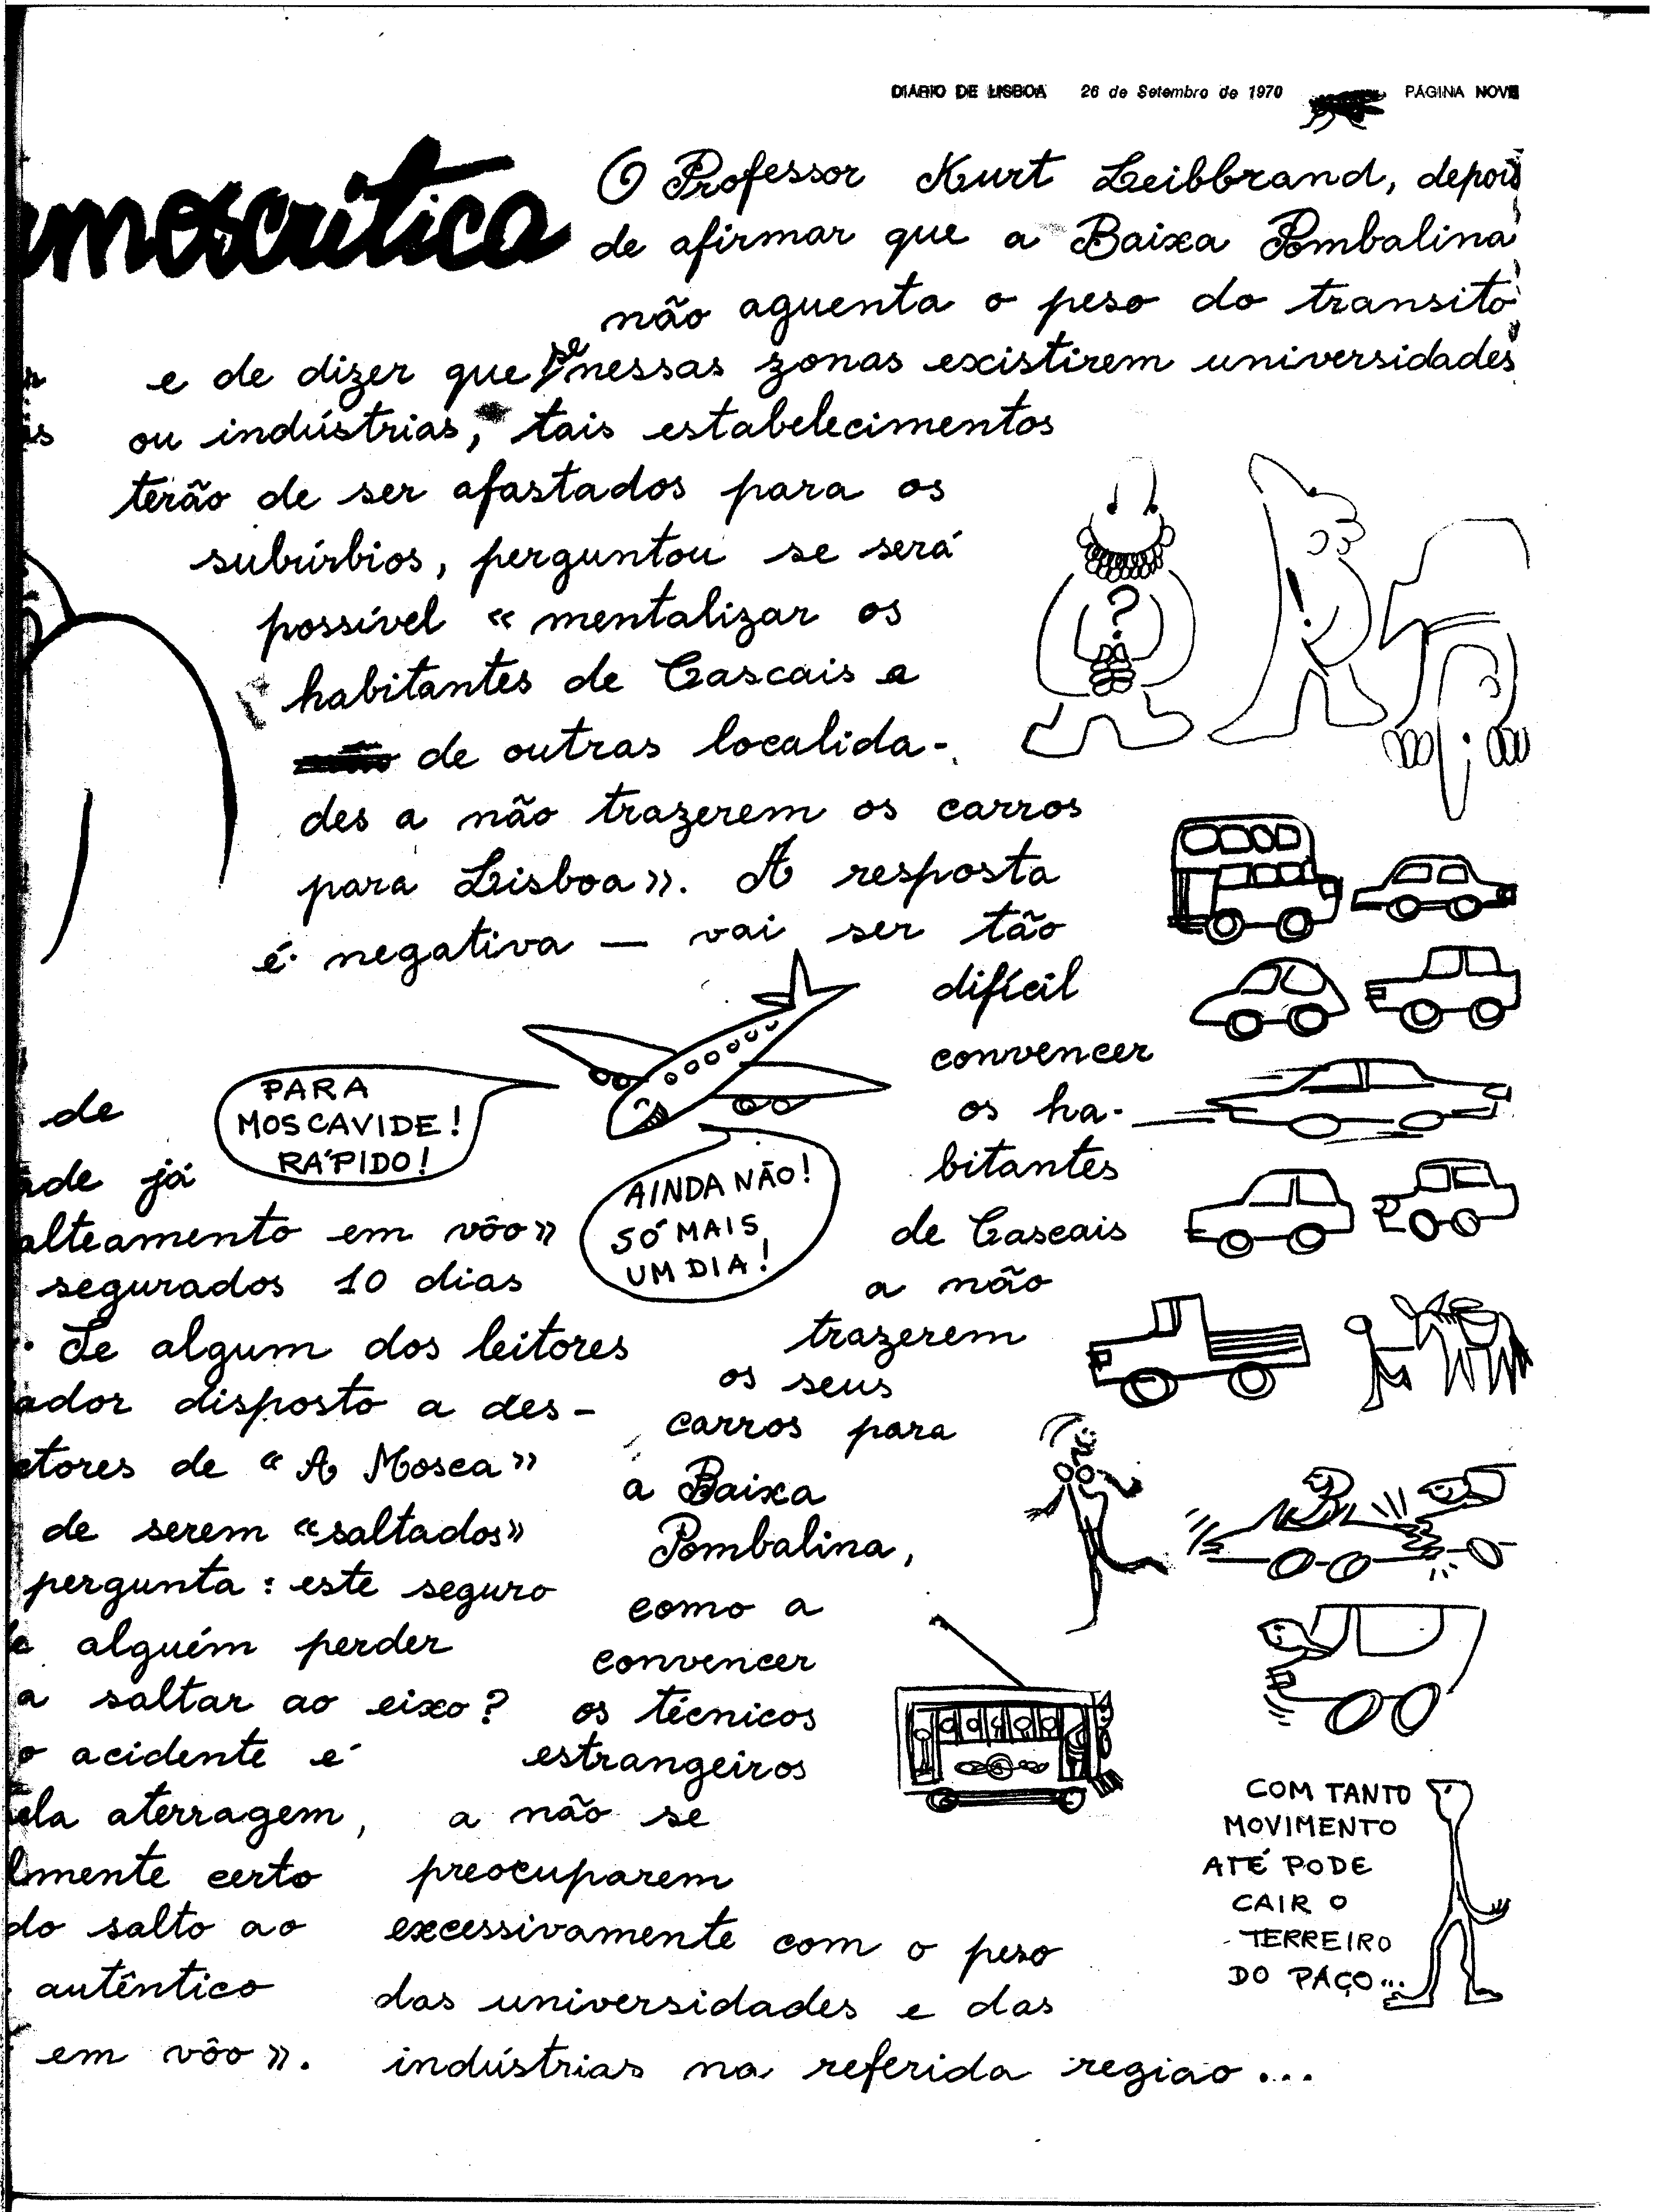 DIÁRIO DE LISBOA 26 de Setembro de 1970 PÁGINA NOVE
moscritica
O Professor Kurt Leibbrand, depois
de afirmar que a Baixa Pombalina
não aguenta o peso do transito
e de dizer que se nessas zonas existirem universidades
ou indústrias, tais estabelecimentos
terão de ser afastados para os
subúrbios, perguntou se será
possível « mentalizar os
habitantes de Cascais e
de outras localida-
des a não trazerem os carros
para Lisboa». A resposta
é negativa — vai ser tão
difícil
convencer
os ha-
bitantes
de Cascais
a não
trazerem
os seus
carros para
a Baixa
Pombalina,
como a
convencer
os técnicos
estrangeiros
a não se
preocuparem
excessivamente com o peso
das universidades e das
indústrias na referida regiao...
PARA
MOSCAVIDE!
RÁPIDO!
AINDA NÃO!
SÓ MAIS
UM DIA!
de
já
alteamento em vôo»
segurados 10 dias
. Se algum dos leitores
ador disposto a des-
ctores de "A Mosca"
de serem «saltados»
pergunta: este seguro
alguém perder
a saltar ao eixo?
o acidente é
ela aterragem,
lmente certo
do salto ao
autêntico
em vôo».
COM TANTO
MOVIMENTO
ATÉ PODE
CAIR O
TERREIRO
DO PAÇO...